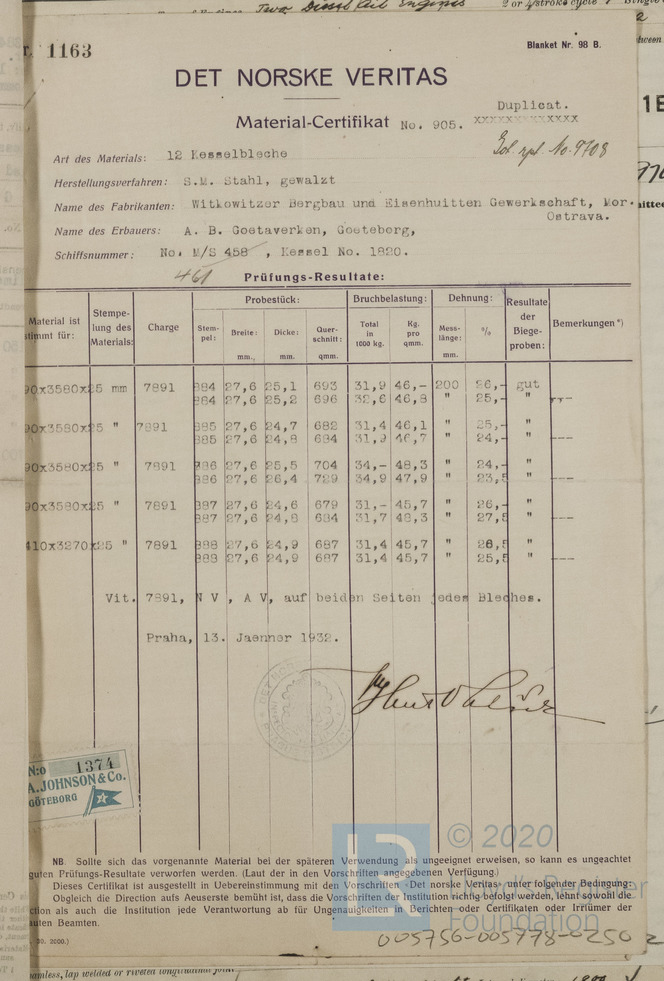 Two Diesel Oil Engines
2 or 4 stroke cycle
1163
Blanket Nr. 98 B.
DET NORSKE VERITAS
Duplicat.
Material-Certifikat No. 905. xxxxxxxxxxxxx
No. 9708
Art des Materials: 12 Kesselbleche
Herstellungsverfahren: S.M. Stahl, gewalzt
Name des Fabrikanten: Witkowitzer Bergbau und Eisenhuitten Gewerkschaft, Mor.
Ostrava.
Name des Erbauers: A. B. Goetaverken, Goeteborg,
Schiffsnummer: No. M/S 458 , Kessel No. 1820.
461
Prüfungs-Resultate:
Material ist stimmt für: Stempelung des Materials: Charge Probestück: Bruchbelastung: Dehnung: Resultate der Biegeproben: Bemerkungen *)
Stempel: Breite: mm. Dicke: mm. Querschnitt: qmm. Total in 1000 kg. Kg. pro qmm. Messlänge: mm. %
90x3580x25 mm 7891 884 27,6 25,1 693 31,9 46,- 200 26,- gut
884 27,6 25,2 696 32,6 46,8 " 25,- " ---
90x3580x25 " 7891 885 27,6 24,7 682 31,4 46,1 " 25,- "
885 27,6 24,8 684 31,9 46,7 " 24,- " ---
90x3580x25 " 7891 886 27,6 25,5 704 34,- 48,3 " 24,- "
886 27,6 26,4 729 34,9 47,9 " 23,5 " ---
90x3580x25 " 7891 887 27,6 24,6 679 31,- 45,7 " 26,- "
887 27,6 24,8 684 31,7 46,3 " 27,5 " ---
410x3270x25 " 7891 888 27,6 24,9 687 31,4 45,7 " 26,5 "
888 27,6 24,9 687 31,4 45,7 " 25,5 " ---
Vit. 7891, N V , A V, auf beiden Seiten jedes Bleches.
Praha, 13. Jaenner 1932.
N:o 1374
A. JOHNSON & Co.
GÖTEBORG
NB. Sollte sich das vorgenannte Material bei der späteren Verwendung als ungeeignet erweisen, so kann es ungeachtet
guten Prüfungs-Resultate verworfen werden. (Laut der in den Vorschriften angegebenen Verfügung.)
Dieses Certifikat ist ausgestellt in Uebereinstimmung mit den Vorschriften «Det norske Veritas» unter folgender Bedingung:
Obgleich die Direction aufs Aeuserste bemüht ist, dass die Vorschriften der Institution richtig befolgt werden, lehnt sowohl die
ction als auch die Institution jede Verantwortung ab für Ungenauigkeiten in Berichten oder Certifikaten oder Irrtümer der
nten Beamten.
30. 2000.)
© 2020
Lloyd's Register
Foundation
005756-005778-0250
seamless, lap welded or riveted longitudinal joint